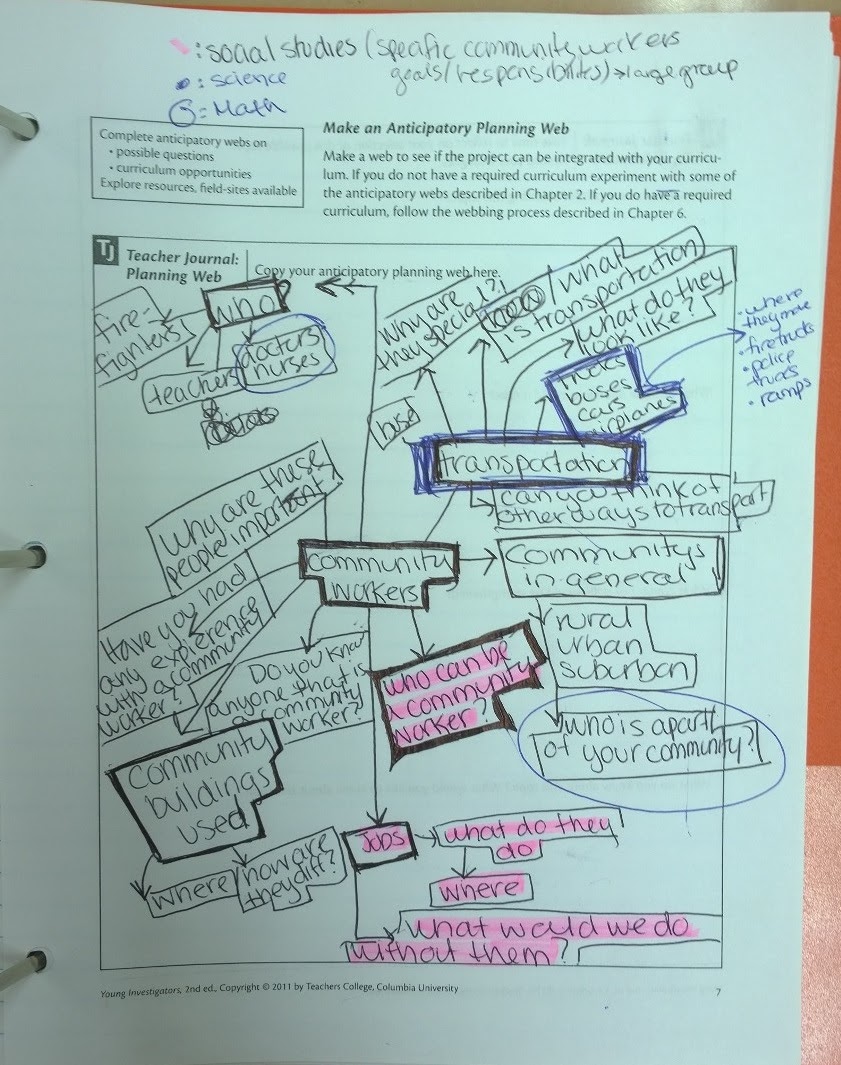 : social studies (specific community workers
goals/responsibilites) → large group
: science
= Math
Complete anticipatory webs on
• possible questions
• curriculum opportunities
Explore resources, field-sites available
Make an Anticipatory Planning Web
Make a web to see if the project can be integrated with your curricu-
lum. If you do not have a required curriculum experiment with some of
the anticipatory webs described in Chapter 2. If you do have a required
curriculum, follow the webbing process described in Chapter 6.
TJ
Teacher Journal:
Planning Web
Copy your anticipatory planning web here.
who?
fire-
fighters
teachers
doctors
nurses
Why are
they special?
/what
is transportation
what do they
look like?
trucks
buses
cars
airplanes
• where
they move
• firetrucks
• police
trucks
• ramps
transportation
can you think of
other ways to transport
Why are these
people important?
community
workers
communitys
in general
rural
urban
suburban
who is apart
of your community?
Have you had
any expierence
with a community
worker?
Do you know
anyone that is
a community
worker?
who can be
a community
worker?
Community
buildings
used
where
how are
they diff?
Jobs
what do they
do
where
what would we do
without them?
Young Investigators, 2nd ed., Copyright © 2011 by Teachers College, Columbia University
7